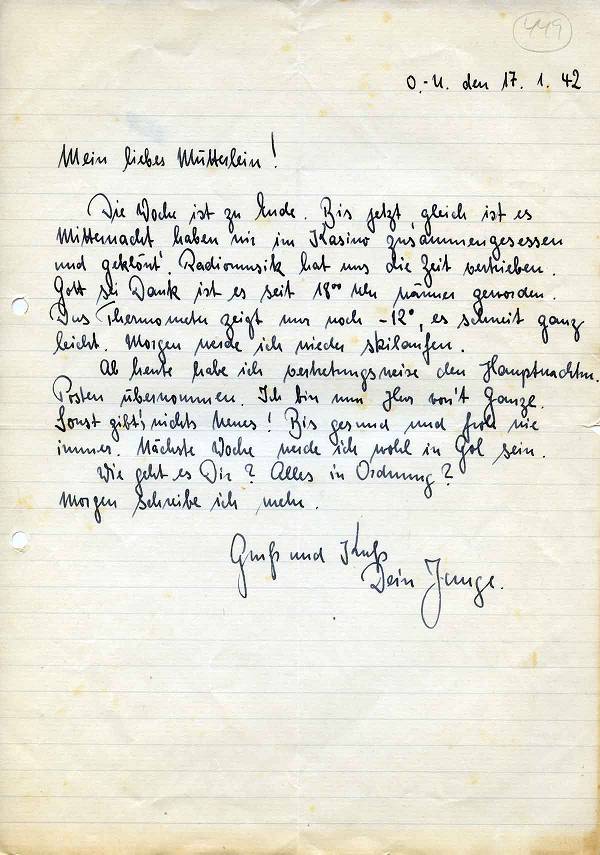 449
O.-U. den 17. 1. 42
Mein liebes Mütterlein!
Die Woche ist zu Ende. Bis jetzt, gleich ist es
Mitternacht, haben wir im Kasino zusammengesessen
und geklönt. Radiomusik hat uns die Zeit vertrieben.
Gott sei Dank ist es seit 18⁰⁰ Uhr wärmer geworden.
Das Thermometer zeigt nur noch -12°, es schneit ganz
leicht. Morgen werde ich wieder skilaufen.
Ab heute habe ich vertretungsweise den Hauptwachtm.
Posten übernommen. Ich bin nun Herr von't Ganze.
Sonst gibt's nichts Neues! Bin gesund und froh wie
immer. Nächste Woche werde ich wohl in Gol sein.
Wie geht es Dir? Alles in Ordnung?
Morgen schreibe ich mehr.
Gruß und Kuß
Dein Junge.